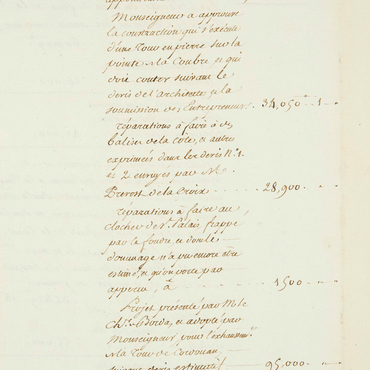 Monseigneur a approuvé
la construction qui s'execute
d'une Tour en pierre sur la
pointe de la Coubre, et qui
doit couter suivant le
devis de l'architecte et la
soumission des Entrepreneurs 34,050 - 1 -
réparations à faire à des
balises de la côte, et autres
exprimées dans les devis N.º 1.
et 2 envoyés par M.
Prevost de la Croix . . . . 28,900. . -
réparations à faire au
clocher de S.t Palais, frappé
par la foudre, et dont le
dommage n'a pu encore être
estimé, et qu'on porte par
apperçu, à . . . . 1500 . -
Projet présenté par M. le
Ch.er de Borda, et adopté par
Monseigneur, pour l'exhaussem.t
de la Tour de Cordouan
suivant devis estimatif 95,000. -